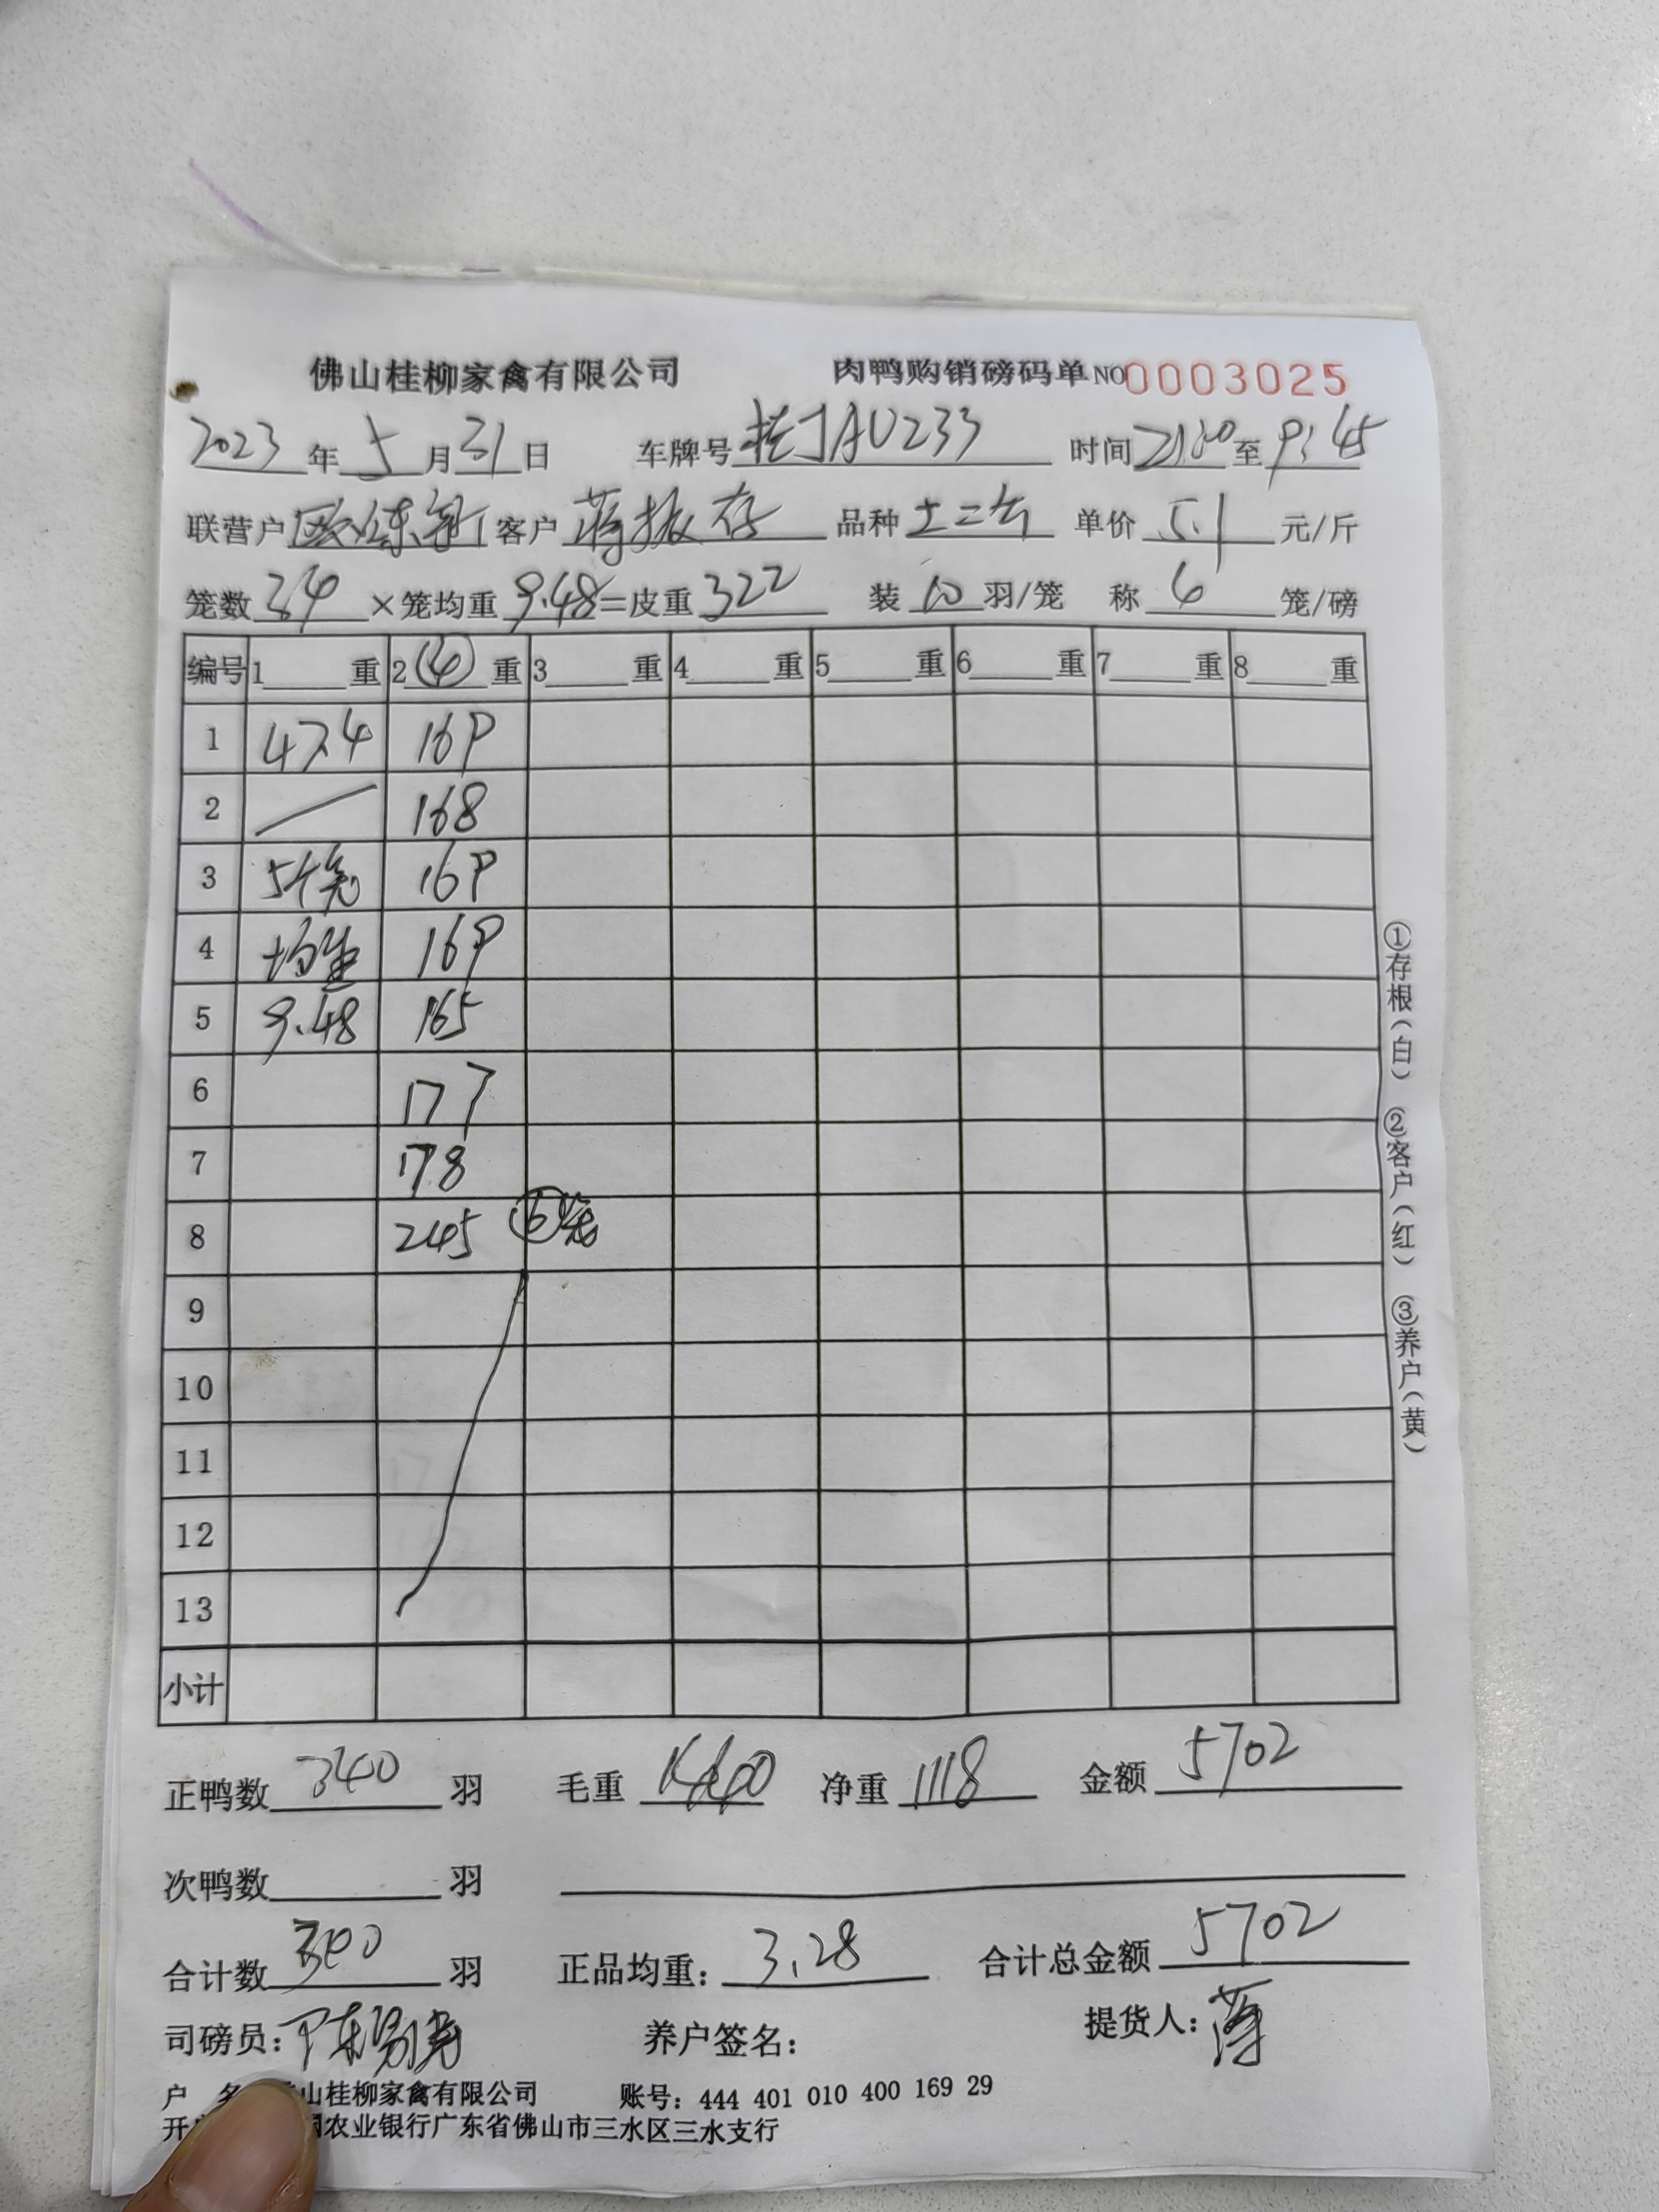 佛山桂柳家禽有限公司 肉鸭购销磅码单 NO 0003025
2023年5月31日 车牌号 AU233 时间21:00至9:45
联营户 客户 蒋振存 品种 土二 单价 5.1 元/斤
笼数 34 ×笼均重 9.48=皮重 322 装 10 羽/笼 称 6 笼/磅
编号 1 重 2 ④ 重 3 重 4 重 5 重 6 重 7 重 8 重
1 47.4 169
2 168
3 5个笼 169
4 均重 169
5 9.48 165
6 177
7 178
8 245 ⑥笼
9
10
11
12
13
小计
①存根(白) ②客户(红) ③养户(黄)
正鸭数 340 羽 毛重 1440 净重 1118 金额 5702
次鸭数 羽
合计数 340 羽 正品均重: 3.28 合计总金额 5702
司磅员: 养户签名: 提货人:
户 名 山桂柳家禽有限公司 账号: 444 401 010 400 169 29
开 农业银行广东省佛山市三水区三水支行